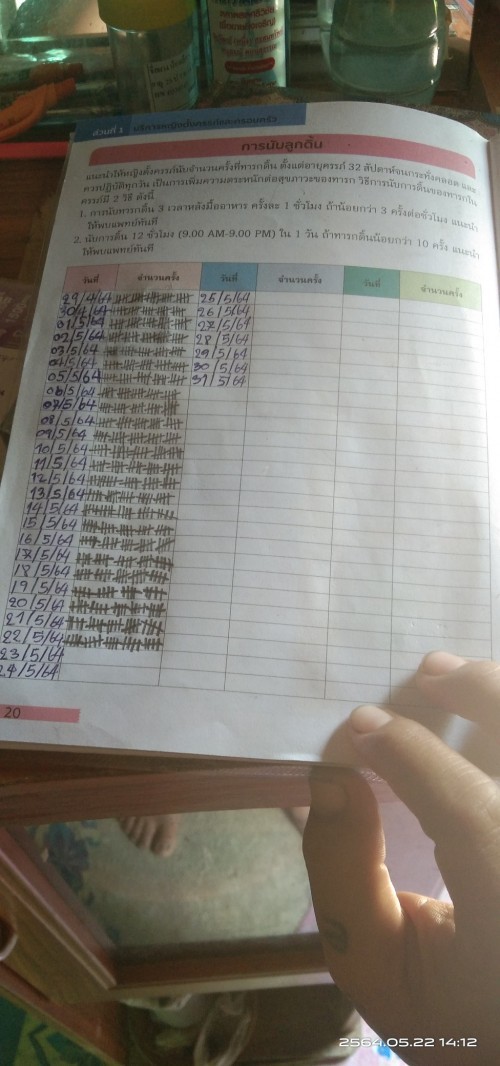 ส่วนที่ 1 บริการหญิงตั้งครรภ์และครอบครัว
การนับลูกดิ้น
แนะนำให้หญิงตั้งครรภ์นับจำนวนครั้งที่ทารกดิ้น ตั้งแต่อายุครรภ์ 32 สัปดาห์จนกระทั่งคลอด และ
ควรปฏิบัติทุกวัน เป็นการเพิ่มความตระหนักต่อสุขภาวะของทารก วิธีการนับการดิ้นของทารกใน
ครรภ์มี 2 วิธี ดังนี้
1. การนับทารกดิ้น 3 เวลาหลังมื้ออาหาร ครั้งละ 1 ชั่วโมง ถ้าน้อยกว่า 3 ครั้งต่อชั่วโมง แนะนำ
ให้พบแพทย์ทันที
2. นับการดิ้น 12 ชั่วโมง (9.00 AM-9.00 PM) ใน 1 วัน ถ้าทารกดิ้นน้อยกว่า 10 ครั้ง แนะนำ
ให้พบแพทย์ทันที
วันที่ จำนวนครั้ง วันที่ จำนวนครั้ง วันที่ จำนวนครั้ง
29/4/64 25/5/64
30/4/64 26/5/64
01/5/64 27/5/64
02/5/64 28/5/64
03/5/64 29/5/64
04/5/64 30/5/64
05/5/64 31/5/64
06/5/64
07/5/64
08/5/64
09/5/64
10/5/64
11/5/64
12/5/64
13/5/64
14/5/64
15/5/64
16/5/64
17/5/64
18/5/64
19/5/64
20/5/64
21/5/64
22/5/64
23/5/64
24/5/64
20
2564.05.22 14:12